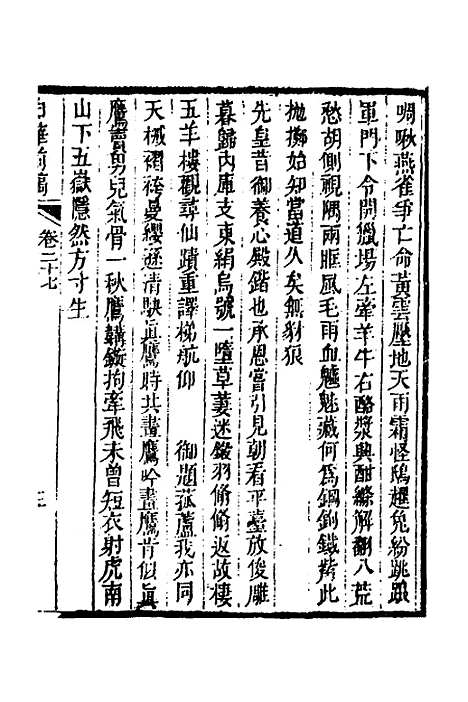 啁啾燕雀爭亡命黃雲壓地天雨霜怪鴟趯兔紛跳踉
軍門下令開獵場左牽羊牛右酪漿輿酣絛解翻八荒
愁胡側視隅兩眶風毛雨血魑魅藏何為鋼鉤鐵觜此
拋擲始知當道久矣無豺狼
先皇昔御養心殿鍇也承恩嘗引見朝看平臺放俊雕
暮歸內庫支東絹烏號一墮草萋迷鎩羽翛翛返故棲
五羊樓觀尋仙蹟重譯梯航仰　御題菰蘆我亦同
天械褶袴曼纓遜清駃眞鷹時共畫鷹吟畫鷹肯似眞
鷹鷙男兒氣骨一秋鷹韝鏇拘牽飛未曾短衣射虎南
山下五嶽隱然方寸生
白華前稿
卷二十七
三